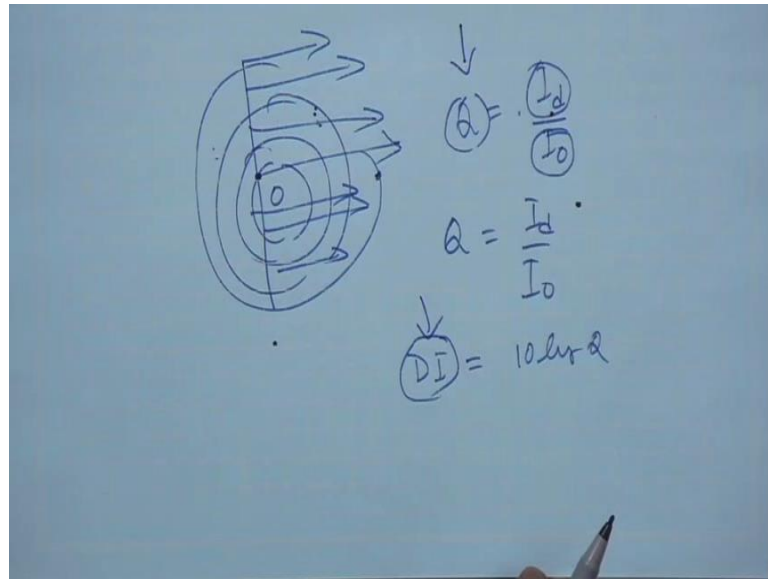 O
Q = I_d / I_0
Q = I_d / I_0
DI = 10 log Q